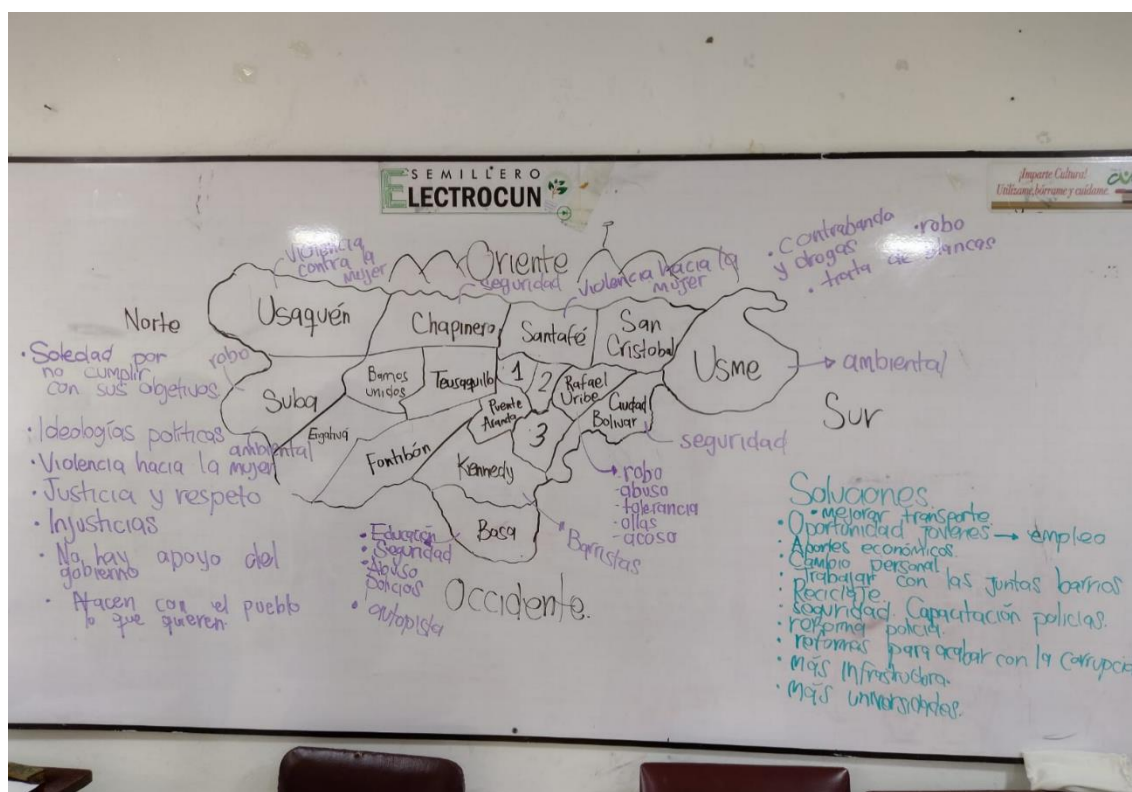 SEMILLERO
ELECTROCUN
¡Imparte Cultura!
Utilízame, bórrame y cuídame.
violencia
contra la
mujer
Oriente
seguridad
violencia hacia la
mujer
• contrabanda
y drogas
• robo
• trata de blancas
Norte
Usaquén
Chapinero
Santafé
San
Cristobal
Usme
→ ambiental
Sur
robo
Suba
Barrios
unidos
Teusaquillo
1
2
Rafael
Uribe
Ciudad
Bolivar
seguridad
Engativá
ambiental
Fontibón
Puente
Aranda
3
Kennedy
Bosa
Barristas
→ robo
- abuso
- tolerancia
- ollas
- acoso
• Educación
• Seguridad
• Abuso
policias
• autopista
Occidente.
• Soledad por
no cumplir
con sus objetivos.
• Ideologías políticas
• Violencia hacia la mujer
• Justicia y respeto
• Injusticias
• No hay apoyo del
gobierno
• Hacen con el pueblo
lo que quieren.
Soluciones
• mejorar transporte.
• Oportunidad jovenes → empleo
• Aportes económicos.
• Cambio personal
• Trabajar con las juntas barrios
• Reciclaje.
• seguridad. Capacitación policias.
• reforma policia.
• reformas para acabar con la corrupcio
• más infrastructura.
• más universidades.